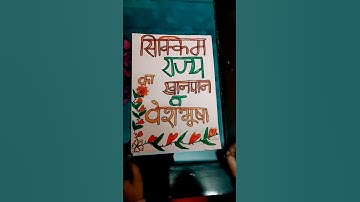 सिक्किम
राज्य
का
खानपान
व
वेशभूषा